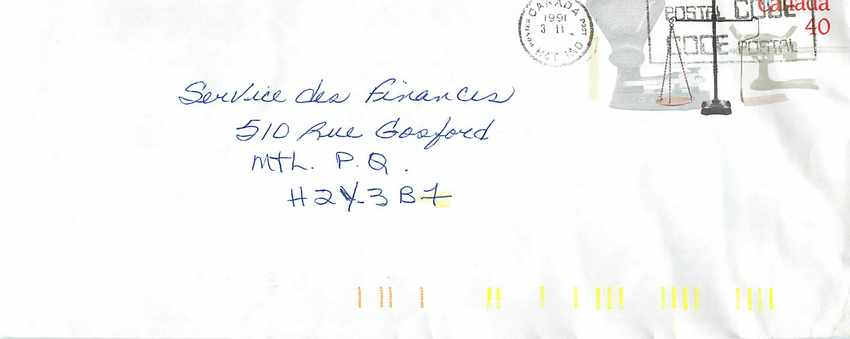 CANADA
1991
3 II
H2T 1A0
POSTAL CODE
CODE POSTAL
Canada
40
Service des Finances
510 Rue Gosford
MTL. P.Q.
H2Y-3B7